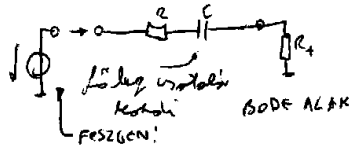 R C
Rt
főleg csatoló
kondi
BODE ALAK
FESZGEN!